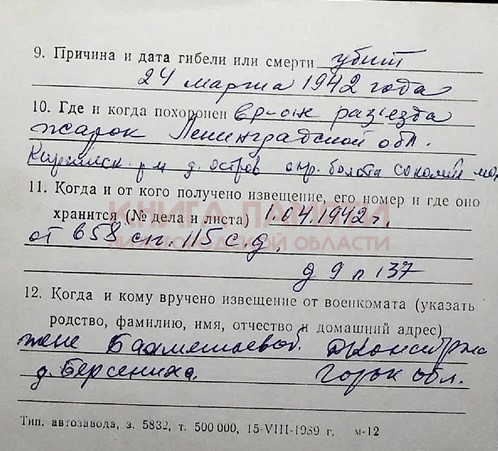 9. Причина и дата гибели или смерти убит
24 марта 1942 года
10. Где и когда похоронен в р-оне разъезда
жарок Ленинградской обл.
Киришск. р-н д. остров окр. болота соколий мох
11. Когда и от кого получено извещение, его номер и где оно
хранится (№ дела и листа) 1.04.1942 г.
КНИГА ПАМЯТИ
НИЖЕГОРОДСКОЙ ОБЛАСТИ
от 658 сп. 115 сд.
д 9 л 137
12. Когда и кому вручено извещение от военкомата (указать
родство, фамилию, имя, отчество и домашний адрес)
жене Бахметьевой.
д. Берсениха. Горьк обл.
Тип. автозавода, з. 5832, т. 500 000, 15-VIII-1989 г. м-12